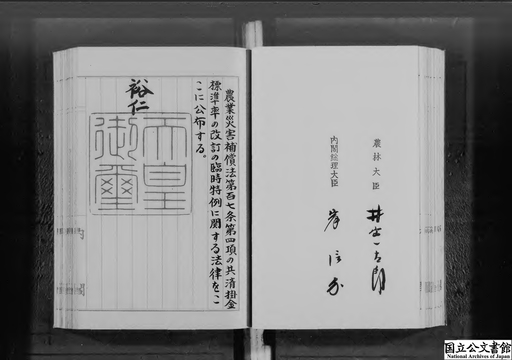 農業災害補償法第百七条第四項の共済掛金
標準率の改訂の臨時特例に関する法律をこ
こに公布する。
裕仁
天皇
御璽
農林大臣
井出一太郎
内閣総理大臣
岸信介
国立公文書館
National Archives of Japan